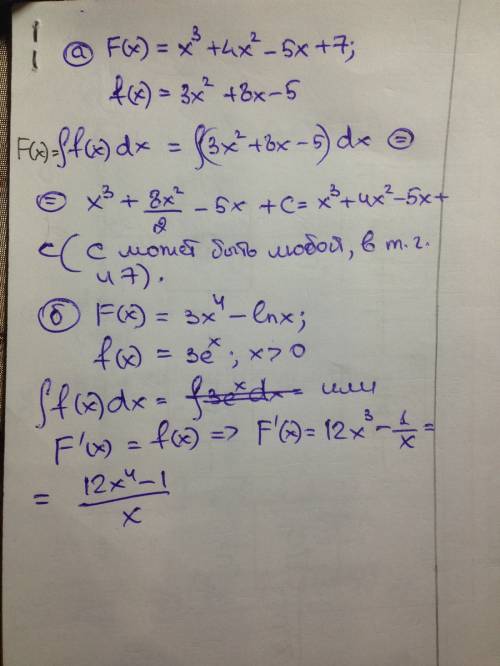 а) F(x) = x³ + 4x² - 5x + 7;
f(x) = 3x² + 8x - 5
F(x) = ∫f(x)dx = ∫(3x² + 8x - 5)dx =
= x³ + 8x²/2 - 5x + C = x³ + 4x² - 5x +
C (C может быть любой, в т.ч.
и 7).
б) F(x) = 3x⁴ - lnx;
f(x) = 3eˣ; x > 0
∫f(x)dx = ∫3eˣdx = или
F'(x) = f(x) => F'(x) = 12x³ - 1/x =
= (12x⁴ - 1)/x